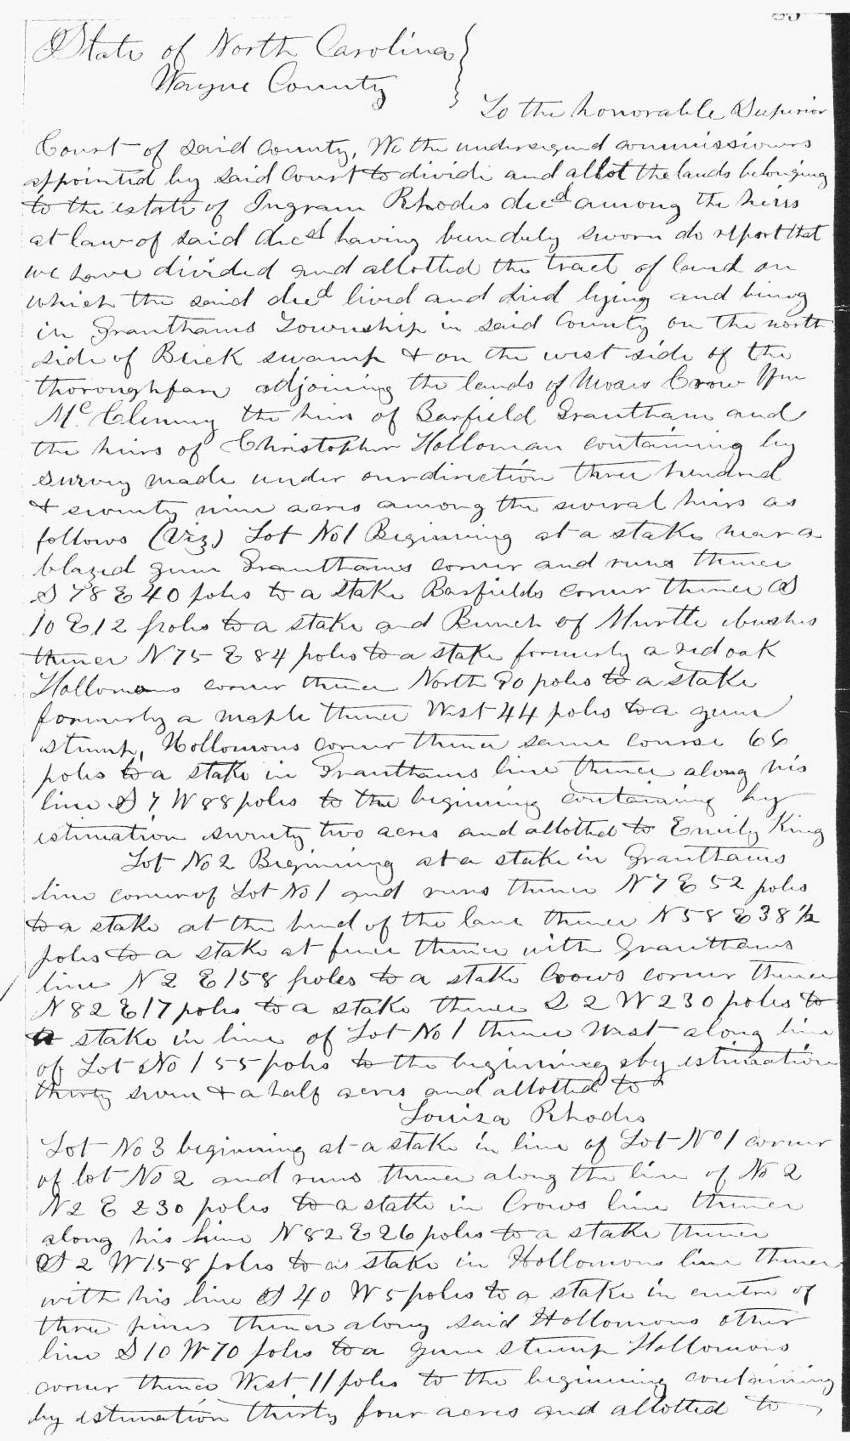 State of North Carolina
Wayne County
To the honorable Superior
Court of said County, We the undersigned commissioners
appointed by said Court to divide and allot the lands belonging
to the estate of Ingram Rhodes decd among the heirs
at law of said decd having been duly sworn do report that
we have divided and allotted the tract of land on
which the said decd lived and died lying and being
in Granthams Township in said County on the north
side of Brick swamp & on the west side of the
thoroughfare adjoining the lands of Moses Crow Wm
McClenny the heirs of Barfield Grantham and
the heirs of Christopher Holloman containing by
survey made under our direction three hundred
& seventy nine acres among the several heirs as
follows (Viz) Lot No 1 Beginning at a stake near a
blazed gum Granthams corner and runs thence
S 78 E 40 poles to a stake Barfields corner thence S
10 E 12 poles to a stake and Bunch of Murtle bushes
thence N 75 E 84 poles to a stake formerly a red oak
Hollomons corner thence North 90 poles to a stake
formerly a maple thence West 44 poles to a gum
stump, Hollomons corner thence same course 66
poles to a stake in Granthams line thence along his
line S 7 W 88 poles to the beginning containing by
estimation seventy two acres and allotted to Emily King
Lot No 2 Beginning at a stake in Granthams
line corner of Lot No 1 and runs thence N 7 E 52 poles
to a stake at the head of the lane thence N 58 E 38 1/2
poles to a stake at fence thence with Granthams
line N 2 E 158 poles to a stake Crows corner thence
N 82 E 17 poles to a stake thence S 2 W 230 poles to
a stake in line of Lot No 1 thence West along line
of Lot No 1 55 poles to the beginning by estimation
thirty seven & a half acres and allotted to
Louiza Rhodes
Lot No 3 beginning at a stake in line of Lot No 1 corner
of lot No 2 and runs thence along the line of No 2
N 2 E 230 poles to a stake in Crows line thence
along his line N 82 E 26 poles to a stake thence
S 2 W 158 poles to a stake in Hollomons line thence
with his line S 40 W 5 poles to a stake in centre of
three pines thence along said Hollomons other
line S 10 W 70 poles to a gum stump Hollomons
corner thence West 11 poles to the beginning containing
by estimation thirty four acres and allotted to